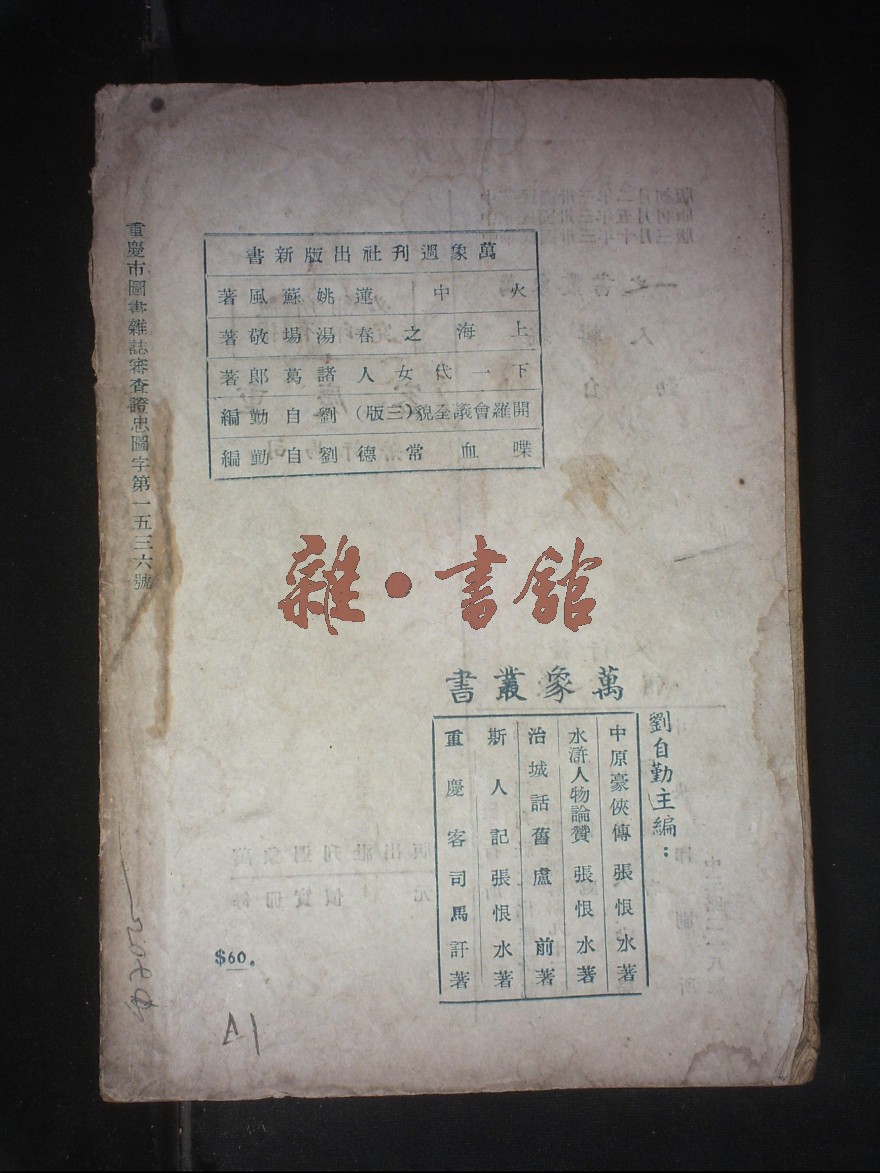 重慶市圖書雜誌審查證忠圖字第一五三六號
萬象週刊社出版新書
火中蓮 姚蘇風著
上海之春 湯場敬著
下一代女人 諸葛郎著
開羅會議全貌(三版) 劉自勤編
喋血常德 劉自勤編
雜·書館
萬象叢書
劉自勤主編：
中原豪俠傳 張恨水著
水滸人物論贊 張恨水著
治城話舊 盧前著
斯人記 張恨水著
重慶客 司馬訏著
$60.
A1